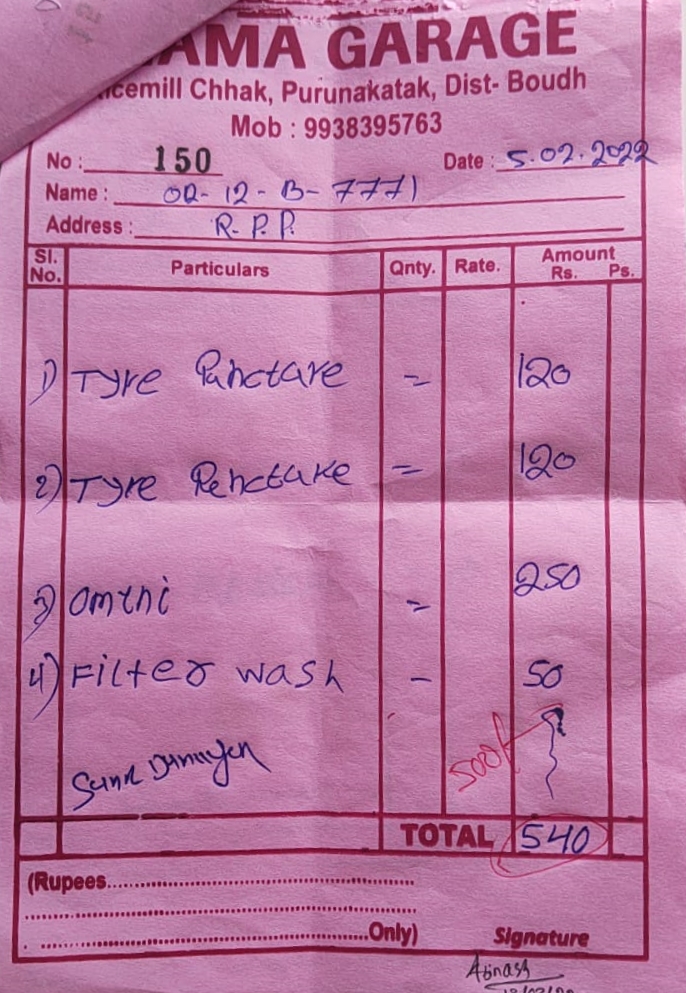 AMA GARAGE
cemill Chhak, Purunakatak, Dist- Boudh
Mob : 9938395763
No : 150 Date : 5.02.2022
Name : OR-12-B-7771
Address : R.P.P.
Sl. No. Particulars Qnty. Rate. Amount Rs. Ps.
1) Tyre Punctare = 120
2) Tyre = 120
3) = 250
4) Filter wash - 50
500/-
TOTAL 540
(Rupees
Only) Signature
Abinash